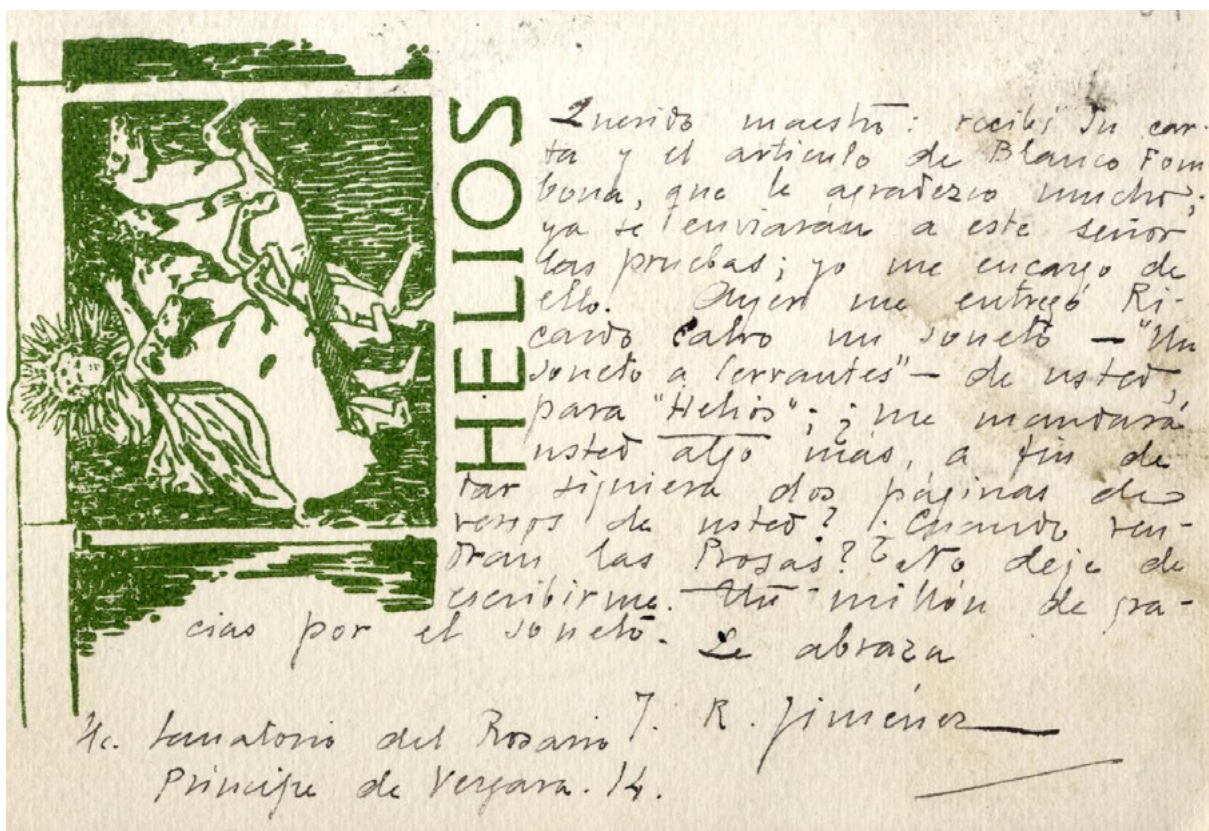 HELIOS
Querido maestro: recibí su car-
ta y el artículo de Blanco Fom
bona, que le agradezco mucho;
ya se enviarán a este señor
las pruebas; yo me encargo de
ello. Ayer me entregó Ri-
cardo Calvo un soneto — "Un
soneto a Cervantes" — de usted,
para "Helios"; ¿me mandará
usted algo más, a fin de
dar siquiera dos páginas de
versos de usted? ¿Cuando ven-
dran las Prosas? No deje de
escribirme. Un millón de gra-
cias por el soneto.
Le abraza
J. R. Jiménez
Sanatorio del Rosario
Príncipe de Vergara. 14.